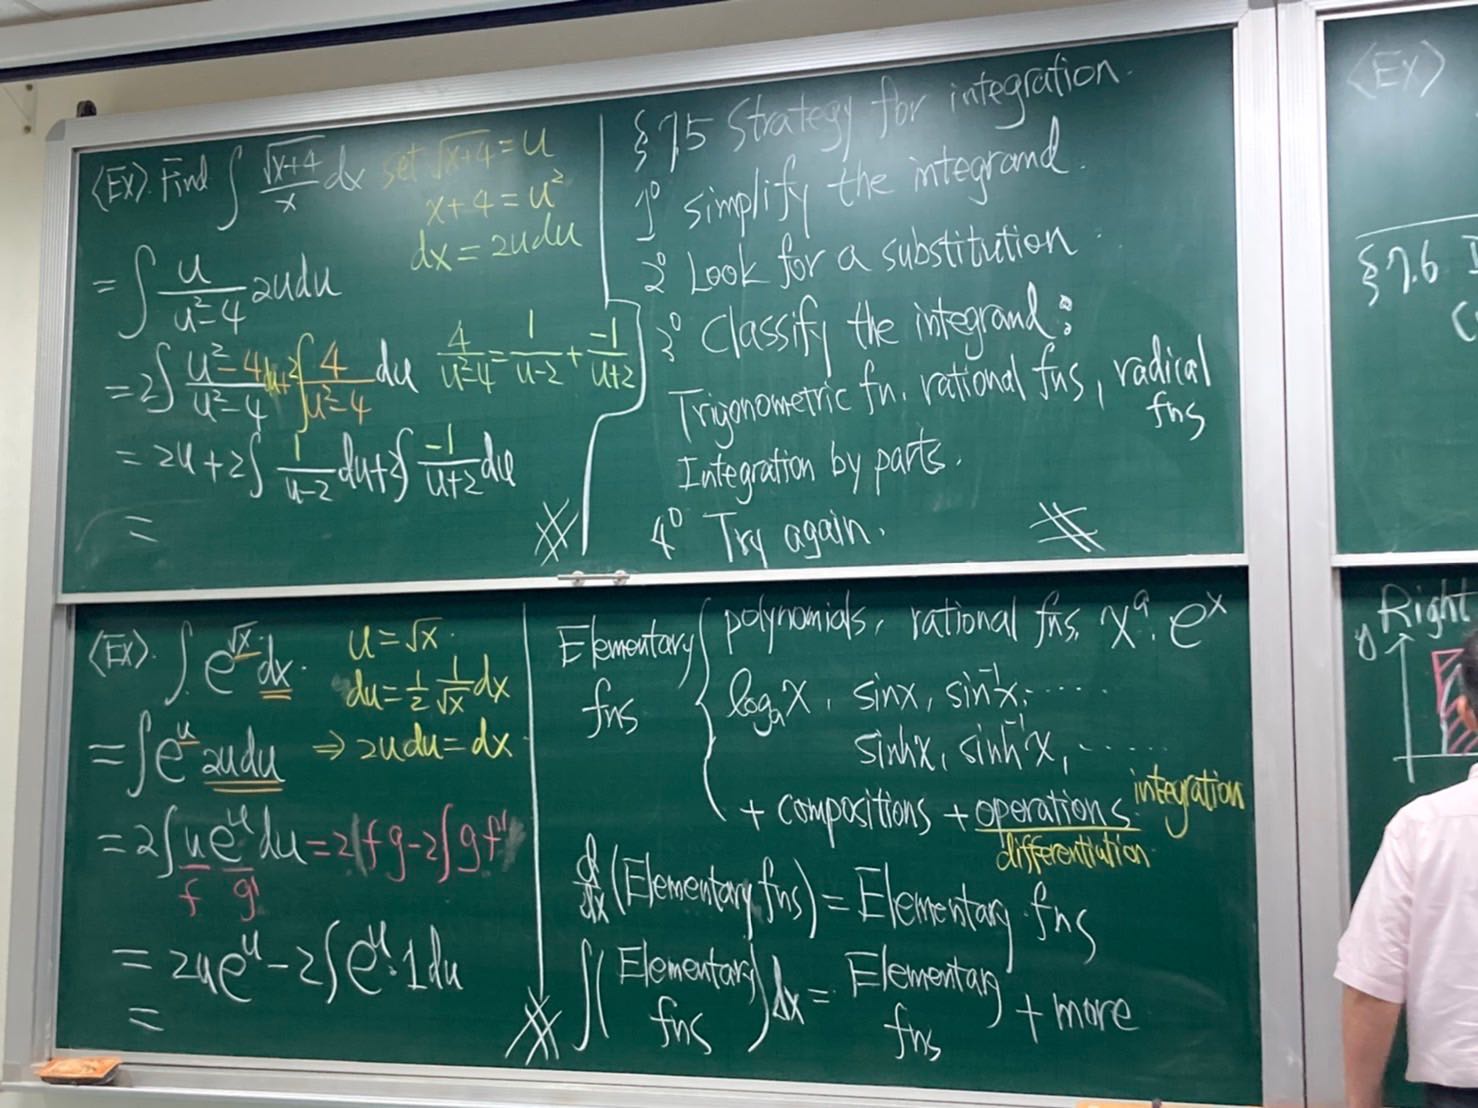 <Ex>. Find ∫ √(x+4)/x dx set √(x+4) = u
x+4 = u²
dx = 2udu
= ∫ u/(u²-4) 2udu
= 2∫ (u²-4)/(u²-4) du + 2∫ 4/(u²-4) du 4/(u²-4) = 1/(u-2) + -1/(u+2)
= 2u + 2∫ 1/(u-2) du + 2∫ -1/(u+2) du
=
§7.5 Strategy for integration.
1° simplify the integrand.
2° Look for a substitution.
3° Classify the integrand:
Trigonometric fn. rational fns, radical
fns
Integration by parts.
4° Try again.
<Ex>. ∫ e^√x dx. u = √x.
du = 1/2 1/√x dx
= ∫ e^u 2udu ⇒ 2udu = dx
= 2∫ u e^u du = 2 f g - 2∫ g f'
f g'
= 2ue^u - 2∫ e^u · 1 du
=
Elementary fns { polynomials, rational fns, x^a, e^x
log_a x, sin x, sin⁻¹x, ......
sinh x, sinh⁻¹x, ......
+ compositions + operations integration
differentiation
d/dx (Elementary fns) = Elementary fns
∫ (Elementary fns) dx = Elementary fns + more
<Ex>
§7.6
y Right